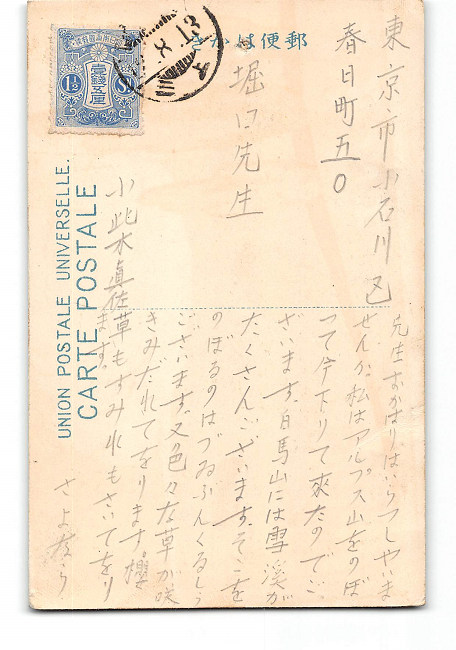 郵便はかき
東京市小石川區
春日町五〇
堀口先生
先生おかはりはいらつしやいま
せんか、私はアルプス山をのぼ
つて今下りて來たのでご
ざいます、白馬山には雪溪が
たくさんございます、そこを
のぼるのはづゐぶんくるしう
ございます、又色々な草が咲
きみだれてをります。櫻
草もすみれもさいてをり
ます。
さよなら
小此木眞佐
壹錢五厘
1½
Sn
UNION POSTALE UNIVERSELLE.
CARTE POSTALE